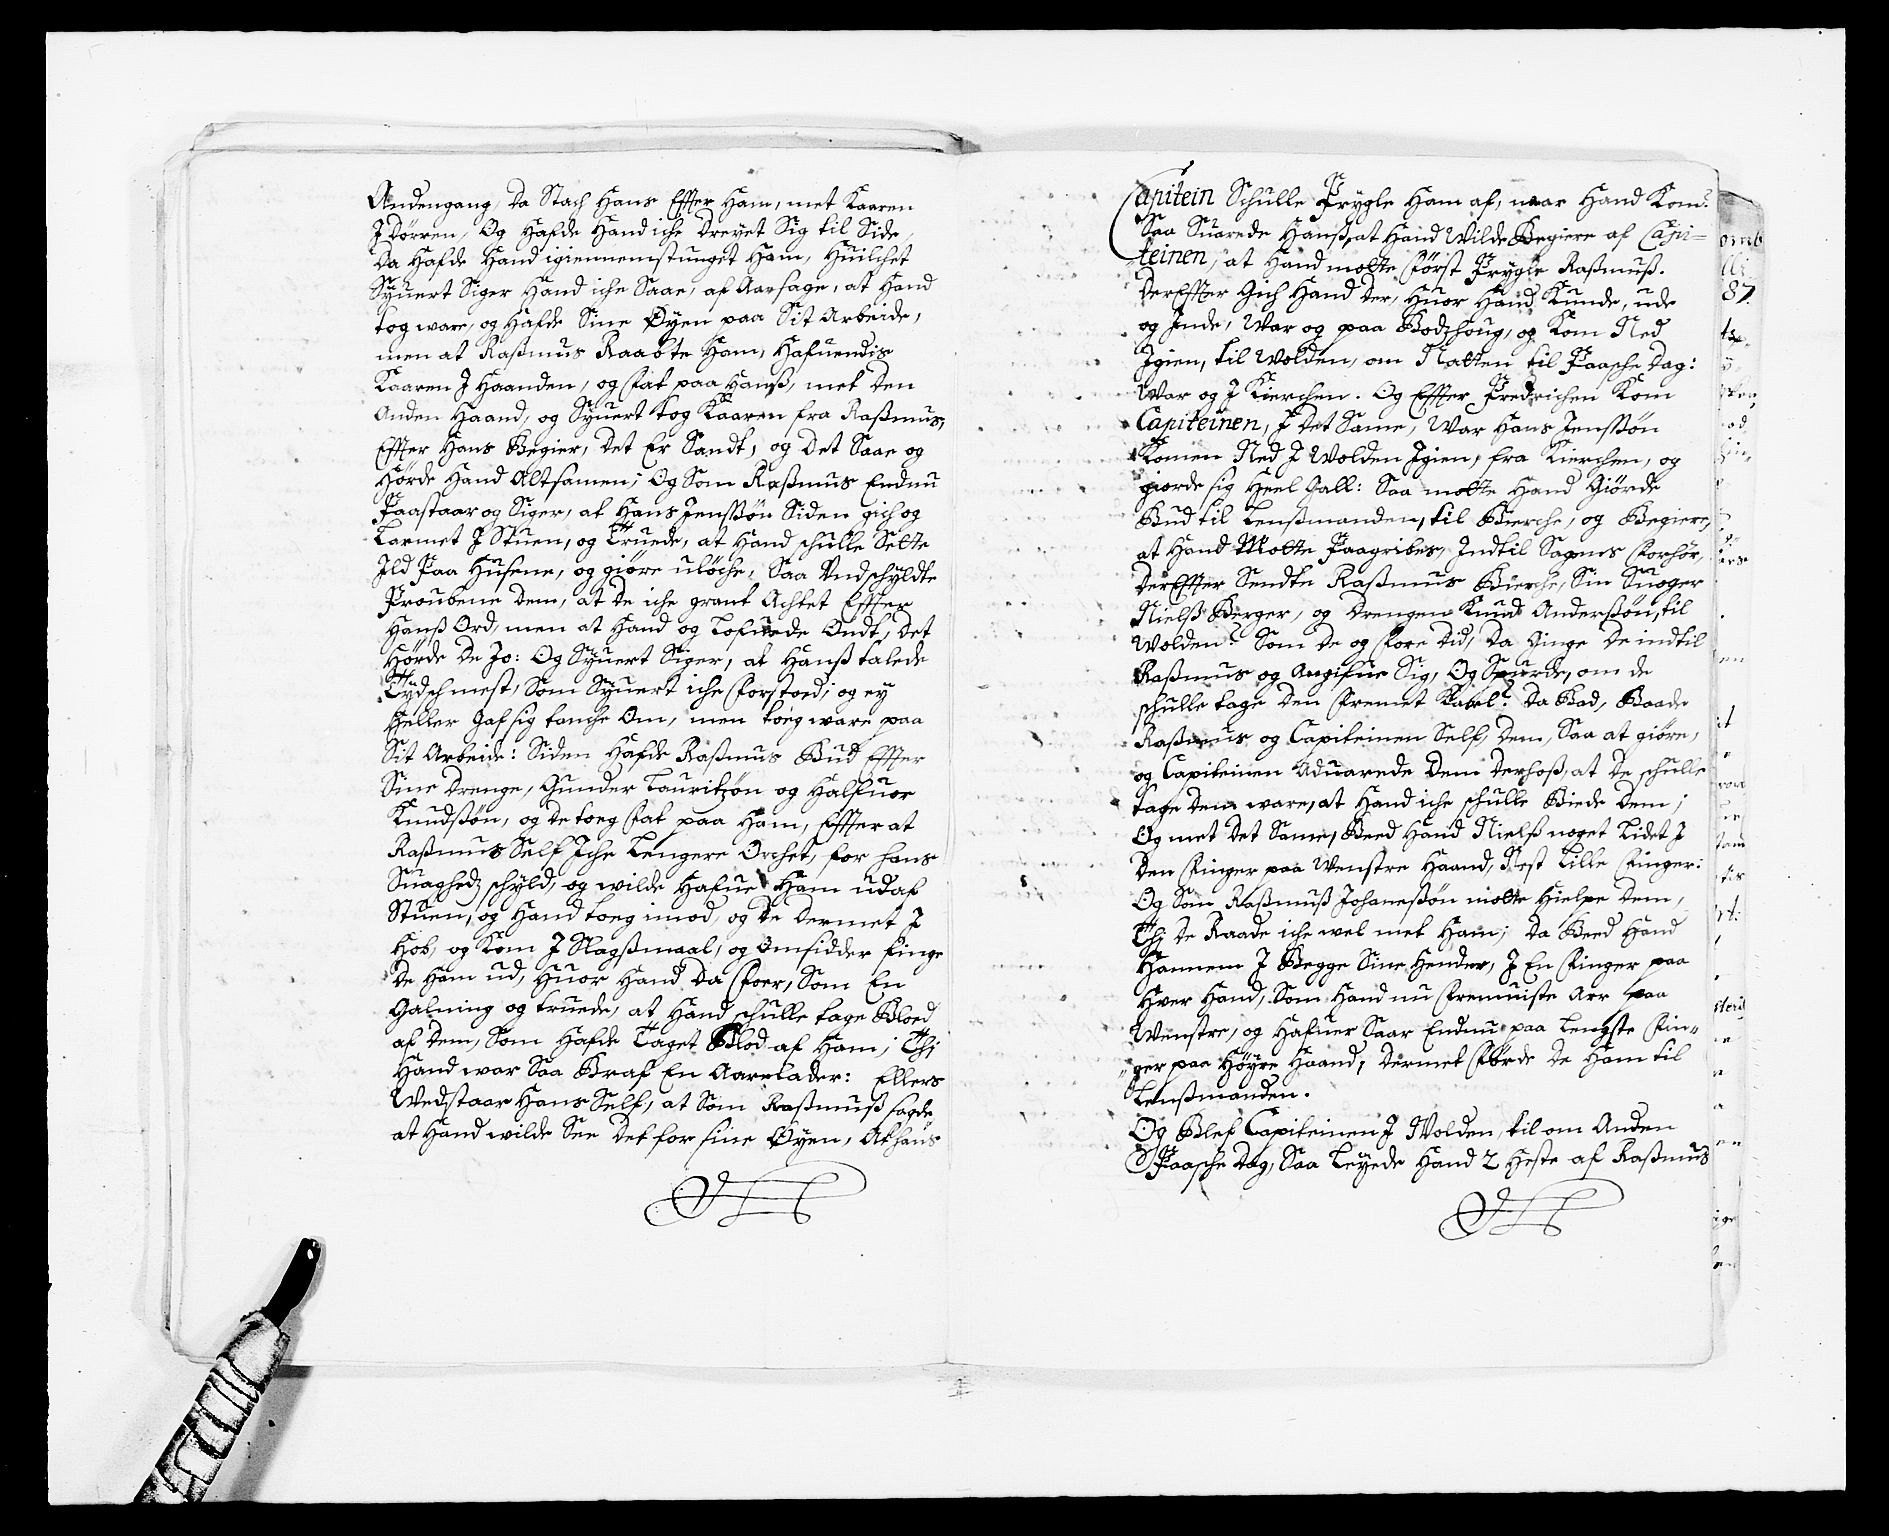 Andengang, da Stach Hans Effter Ham, met Kaaren
J Dörren, Og Hafde Hand iche Dreyet Sig til Side,
Da Hafde Hand igiennemstunget Ham, Huilchet
Syuert Siger Hand iche Saae, af Aarsage, at Hand
tog ware, og Hafde Sine Öyen paa Sit Arbeide,
men at Raßmus Raabte Ham, Hafuendis
Kaaren J Haanden, og fat paa Hanß, met den
Anden Haand, og Syuert tog Kaaren fra Raßmus,
Effter Hans Begier, Det Er Sandt, og Det Saae og
Hörde Hand Altsamen; Og Som Raßmus Endnu
Paastaar og Siger, at Hans Jenßön Siden gich og
Larmet J Stuen, og Truede, at Hand schulle Sette
Jld Paa Husene, og giöre ulöche, Saa Vndschyldte
Proubene Dem, at De iche grant Achtet Effter
Hanß Ord, men at Hand og Lofuede Ondt, Det
Hörde De Jo: Og Syuert Siger, at Hanß talede
Tydsch mest, Som Syuert iche forstoed; og ey
Heller Gaf sig tanche Om, men toeg ware paa
Sit Arbeide: Siden Hafde Raßmus Bud Effter
Sine Drenge, Gunder Lauritzön og Halfuor
Knudßön, og de toeg fat paa Ham, Effter at
Raßmus Self Jche Lengere Orchet, for hans
Suaghedz schyld, og wilde Hafue Ham ud af
Stuen, og Hand toeg imod, og De Dermet J
Hob, og Kom J Slagßmaal, og Omsidder finge
De Ham ud, Huor Hand Da foer, Som En
Galning og truede, at Hand schulle tage Bloed
af Dem, Som Hafde Taget Blod af Ham; Thi
Hand war Saa Braf En Aarelader: Ellers
Wedstaar Hans Self, at Som Raßmuß sagde
at Hand wilde See Det for sine Öyen, At hans
Capitein Schulle Prygle Ham af, naar Hand Kom.
Saa Suarede Hanß, at Hand Wilde Begiere af Capi=
teinen, at Hand motte först Prygle Raßmuß.
DerEffter Gich Hand der, Huor Hand Kunde, ude
og Jnde, War og paa Bodzhoug, og Kom Ned
Jgien, til Wolden, om Natten til Paasche Dag:
War og J Kierchen. Og Effter Predichen Kom
Capiteinen, J Det Same, War Hans Jenßön
Komen Ned J Wolden Jgien, fra Kierchen, og
giorde sig Heel Gall: Saa motte Hand Giörde
Bud til Lenßmanden, til Bierche, og Begiere,
at Hand Motte Paagribes, Jndtil Sagens forhör,
DerEffter Sendte Raßmus Bierche, Sin Suoger
Nielß Berger, og Drengen Knud Anderßön, til
Wolden: Som De og fore Did, Da Ginge De ind til
Raßmus og Angifue Sig, Og Spurde, om de
schulle tage Den fremet Kabel? Da Bad, Baade
Raßmus og Capiteinen Self, Dem, Saa at giöre,
og Capiteinen Aduarede Dem Derhoß, at De schulle
tage Dem ware, at Hand iche schulle Biede Dem;
Og met Det Same, Beed Hand Nielß noget Lidet J
Den finger paa Venstre Haand, Nest Lille finger:
Og Som Raßmuß Johaneßön motte Hielpe Dem,
Thi De Raade iche wel met Ham; Da Beed Hand
Hannem J Begge Sine Hender, J En finger paa
Hver Hand, Som Hand nu fremuiste Arr paa
Wenstre, og Hafuer Saar Endnu paa Lengste fin=
ger paa Höyre Haand, Dermet förde De Ham til
Lenßmanden.
Og Blef Capiteinen J Wolden, til om Anden
Paasche Dag, Saa Leyede Hand 2 Heste af Raßmus